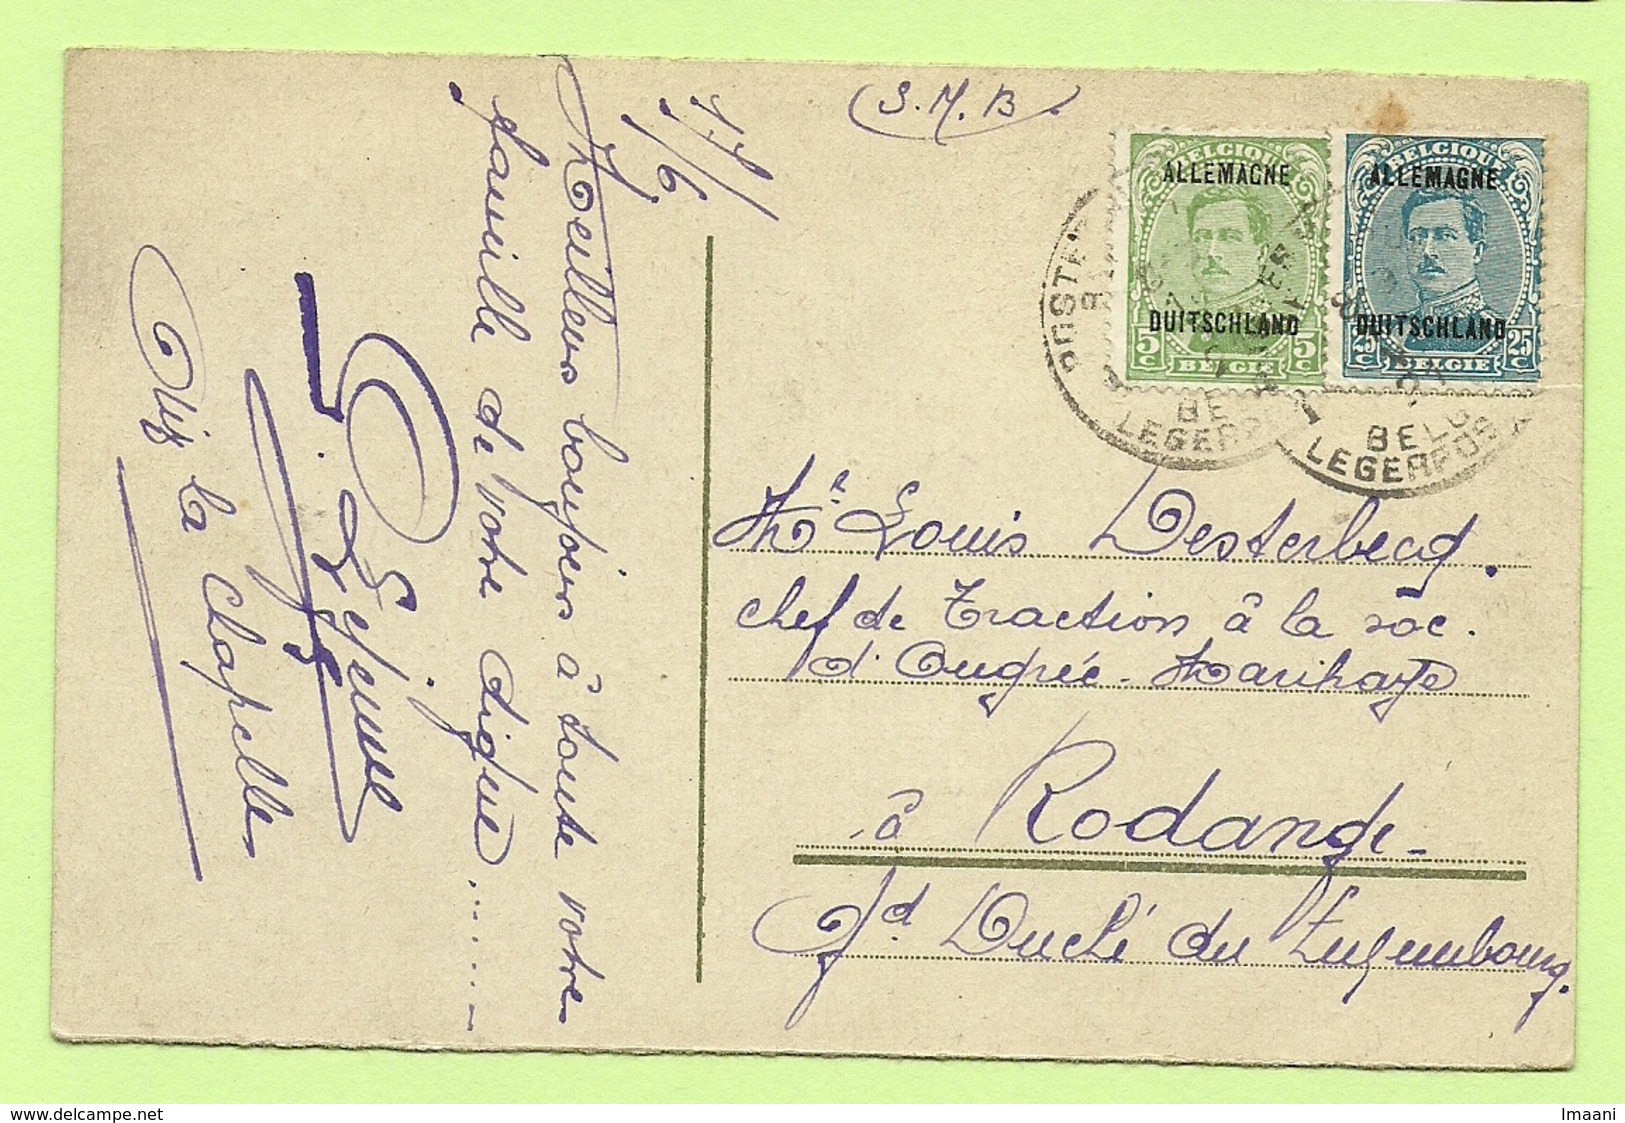 S.M.B.
17/6
Meilleurs bonjours à toute votre
famille de votre digue.......
L. Lejeune
Aix la Chapelle
BELGIQUE
ALLEMAGNE
DUITSCHLAND
5c 5c
BELGIE
BELGIQUE
ALLEMAGNE
DUITSCHLAND
25c 25c
BELGIE
POSTES
BELG
LEGERPOS
BELG
LEGERPOS
Mr Louis Desterbecq.
chef de Traction à la soc.
d'Ougrée-Marihaye
à Rodange-
Gd Duché du Luxembourg.
www.delcampe.net
Imaani